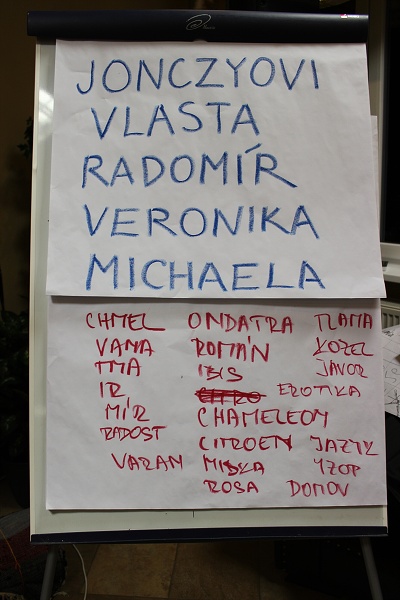 JONCZYOVI
VLASTA
RADOMÍR
VERONIKA
MICHAELA
CHMEL ONDATRA TLAMA
VANA ROMÁN KOZEL
TMA IBIS JAVOR
IR EROTIKA
MÍR CHAMELEON
RADOST CITROEN JAZYK
VARAN MISKA YZOP
ROSA DOMOV